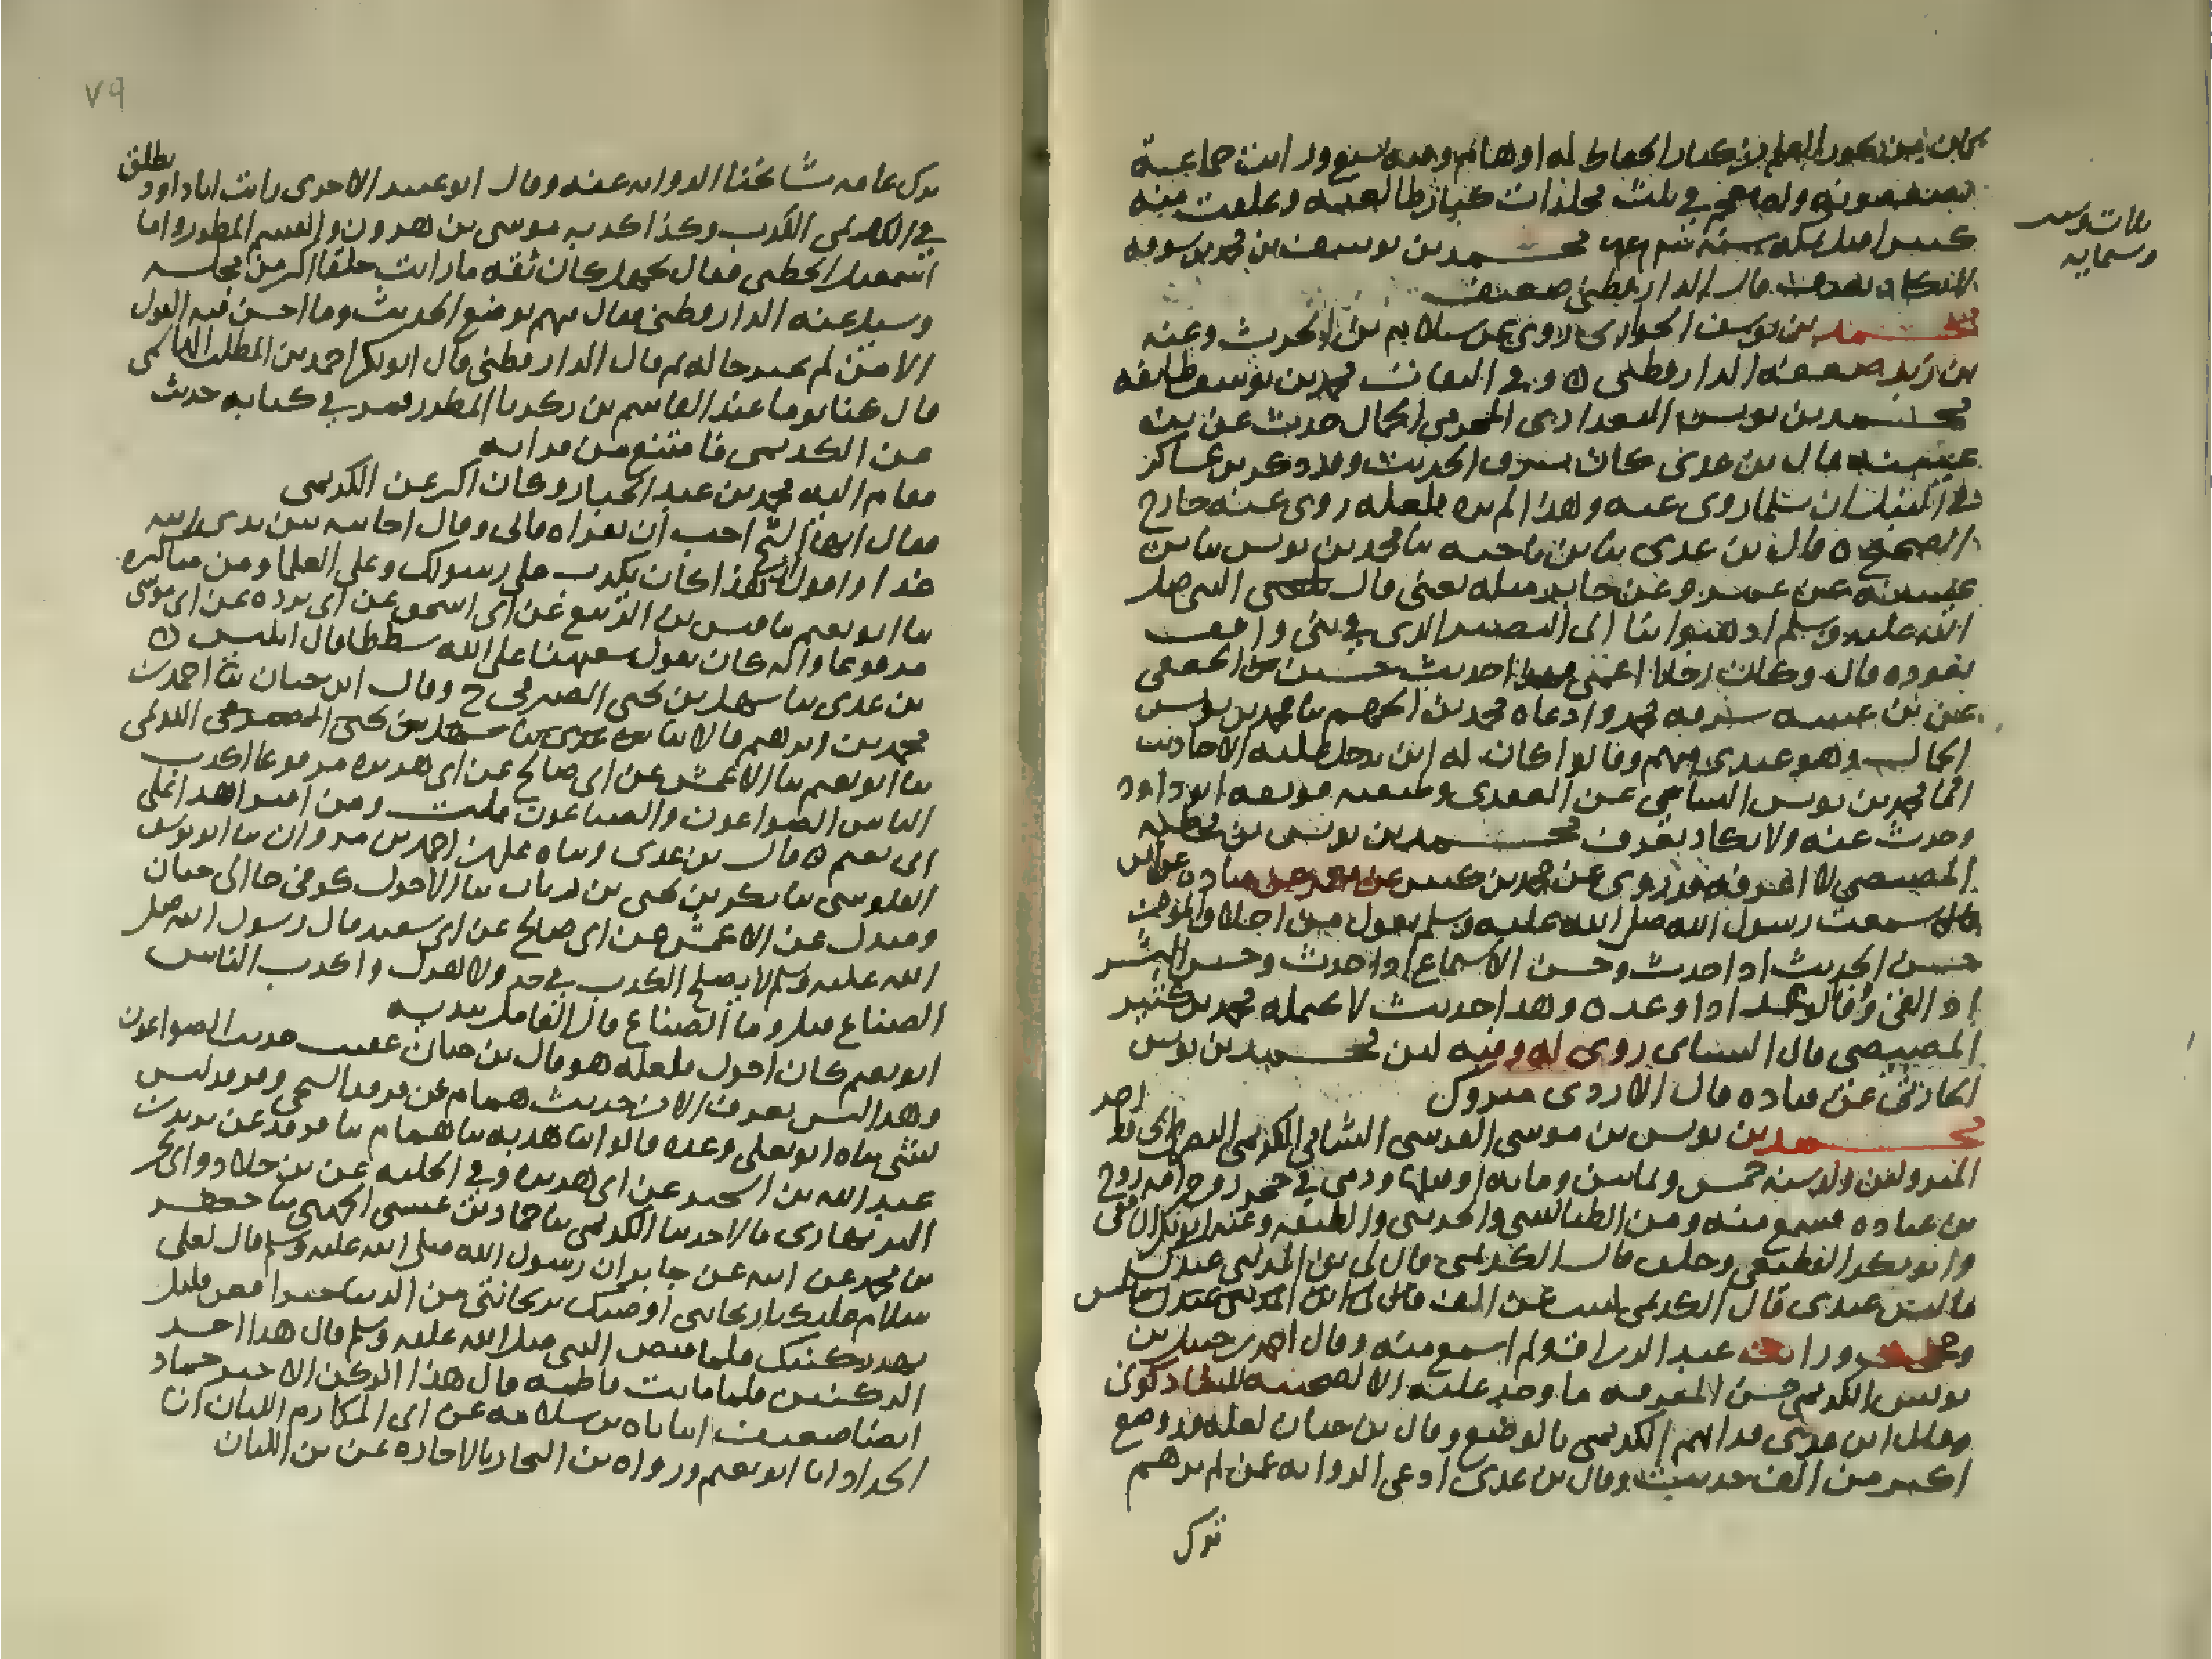 ثلاث وستين
وستمايه
من بحور العلم ومن كبار الحفاظ له اوهام وفيه تشيع ورايت جماعة
يضعفونه وله معجم في ثلث مجلدات كبار طالعته وعلقت منه
كثيرا قتل بمكة سنة محمد بن يوسف بن محمد بن سوقه
لا يكاد يعرف قال الدارقطني ضعيف
محمد بن يوسف الجواربى روى عن سلام بن الحرث وعنه
بن زيد ضعفه الدارقطنى وفي الثقات محمد بن يوسف طايفه
محمد بن يونس البغدادى المخرمي الجمال حدث عن بن
عيينه قال بن عدى كان يسرق الحديث وقد ذكر بن عساكر
في النبل ان مسلما روى عنه وهذا لم نره فلعله روى عنه خارج
الصحيح قال بن عدى ثنا بن ناجيه ثنا محمد بن يونس ثنا بن
عيينه عن عمرو عن جابر مثله يعنى قال النبي صلى
الله عليه وسلم اذهبوا بنا الى البصير الذى في بنى واقف
نعوده قال وكان رجلا اعمى وهذا حديث حسين الجعفى
عن بن عيينه سرقه محمد وادعاه محمد بن الجهم ثنا محمد بن يونس
الجمال وهو عندى متهم وقالوا كان له ابن يدخل عليه الاحاديث
اما محمد بن يونس النسامى عن العقدى وطبقته فوثقه ابو داود
وحدث عنه ولا يكاد يعرف محمد بن يونس بن
المصيصي لا اعرفه قد روى عن محمد بن كثير عن معمر عن قتاده عن انس
قال سمعت رسول الله صلى الله عليه وسلم يقول من اخلاق المؤمن
حسن الحديث اذا حدث وحسن الاستماع اذا حدث وحسن البشر
اذا لقى ووفا الوعد اذا وعد وهذا حديث لا يحمله محمد بن كثير
المصيصي قال النساى روى له وفيه لين محمد بن يونس
الحارثى عن قتاده قال الازدى متروك
محمد بن يونس بن موسى القرشى الشامى الكديمى البصرى احد
المتروكين ولد سنة خمس وثمانين ومايه او قبلها وربى في حجر زوج امه روح
بن عباده فسمع منه ومن الطيالسى والخريبى والطبقه وعنه ابو بكر الشافعى
وابو بكر القطيعى وخلق قال الكديمى قال لى بن المدينى عندك
ما ليس عندى قال الكديمى كتبت عن الف
ورايت عبد الرزاق ولم اسمع منه وقال احمد بن حنبل بن
يونس الكديمى حسن المعرفه ما وجد عليه الا لصحبته للشاذكونى
وقال ابن عدى قد اتهم الكديمى بالوضع وقال بن حبان لعله قد وضع
اكثر من الف حديث وقال بن عدى ادعى الروايه عمن لم يرهم
ترك
٧٩
ترك عامه مشايخنا الروايه عنه وقال ابو عبيد الاجرى رايت ابا داود يطلق
في الكديمى الكذب وكذا كذبه موسى بن هرون والقسم المطرز واما
اسمعيل الخطبى فقال بجهل كان ثقه ما رايت خلقا اكثر من مجلسه
وسيل عنه الدارقطنى فقال يتهم بوضع الحديث وما احسن فيه القول
الا من لم يخبر حاله ثم قال الدارقطنى قال ابو بكر احمد بن المطلب الهاشمى
قال كنا يوما عند القاسم بن زكريا المطرز فمر في كتابه حديث
عن الكديمى فامتنع من قراته
فقام اليه محمد بن عبد الجبار وكان اكثر عن الكديمى
فقال ايها الشيخ احب ان تقراه فابى وقال اجاثيه بين يدى الله
غدا واقول ان هذا كان يكذب على رسولك وعلى العلما ومن مناكيره
ثنا ابو نعيم ثنا قيس بن الربيع عن ابى اسحق عن ابى برده عن ابى موسى
مرفوعا وانه كان يقول سفيهنا على الله شططا قال ابليس
بن عدى ثنا سهل بن يحيى الصيرفى ح وقال ابن حبان ثنا احمد بن
محمد بن ابرهيم قالا ثنا
ثنا ابو نعيم ثنا الاعمش عن ابى صالح عن ابى هريره مرفوعا اكذب
الناس الصواغون والصباغون قلت ومن افترا هذا على
ابى نعيم قال بن عدى وثناه علان احمد بن مروان ثنا ابو يونس
القلوسى ثنا بكر بن يحيى بن زبان ثنا الاحول كوفى خال حبان
ومندل عن الاعمش عن ابى صالح عن ابى سعيد قال رسول الله صلى
الله عليه وسلم لا يصلح الكذب في جد ولا هزل واكذب الناس
الصناع قيل وما الصناع قال العامل بيديه
ابو نعيم كان احول فلعله هو قال بن حبان عقيب حديث الصواغون
وهذا ليس يعرف الا من حديث همام عن فرقد السبخى وفرقد ليس
بشى ثناه ابو يعلى وعده قالوا ثنا هدبه ثنا همام ثنا فرقد عن يزيد بن
عبد الله بن الشخير عن ابى هريره وفي الحليه عن بن خلاد وابى بحر
البربهارى قالا حدثنا الكديمى ثنا حماد بن عيسى الجهنى ثنا جعفر
بن محمد عن ابيه عن جابر ان رسول الله صلى الله عليه وسلم قال لعلى
سلام عليك يا ريحانتى اوصيك بريحانتى من الدنيا خيرا فعن قليل
يهد ركنيك فلما قبض النبى صلى الله عليه وسلم قال هذا احد
الركنين فلما ماتت فاطمه قال هذا الركن الاخير حماد
ايضا ضعيف انباناه بن سلامه عن ابى المكارم اللبان انا
الحداد انا ابو نعيم ورواه بن النجار بالاجازه عن بن اللبان